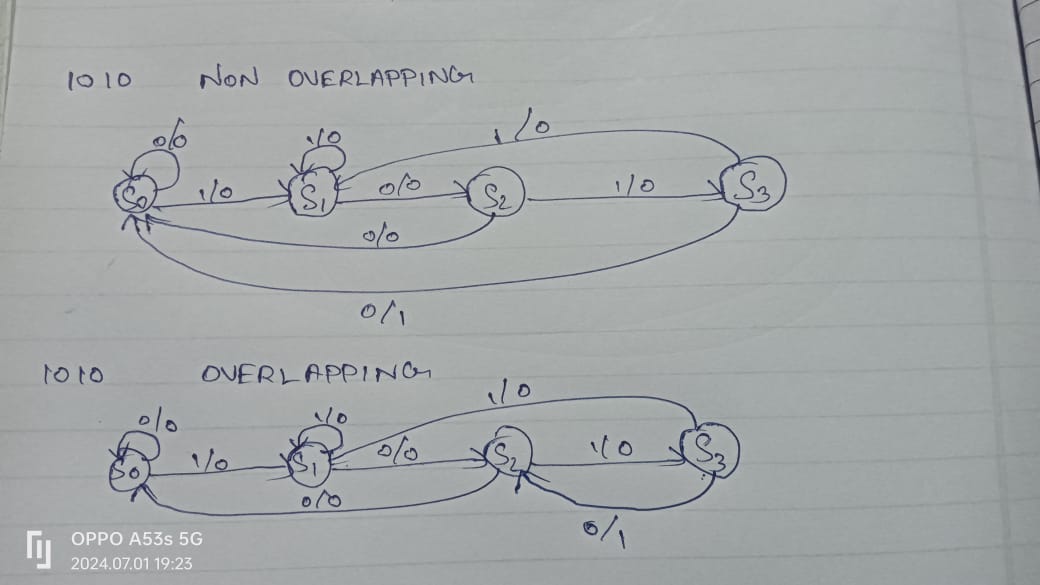 1010 NON OVERLAPPING
0/0 1/0 1/0
S0 1/0 S1 0/0 S2 1/0 S3
0/0
0/1
1010 OVERLAPPING
0/0 1/0 1/0
S0 1/0 S1 0/0 S2 1/0 S3
0/0
0/1
OPPO A53s 5G
2024.07.01 19:23